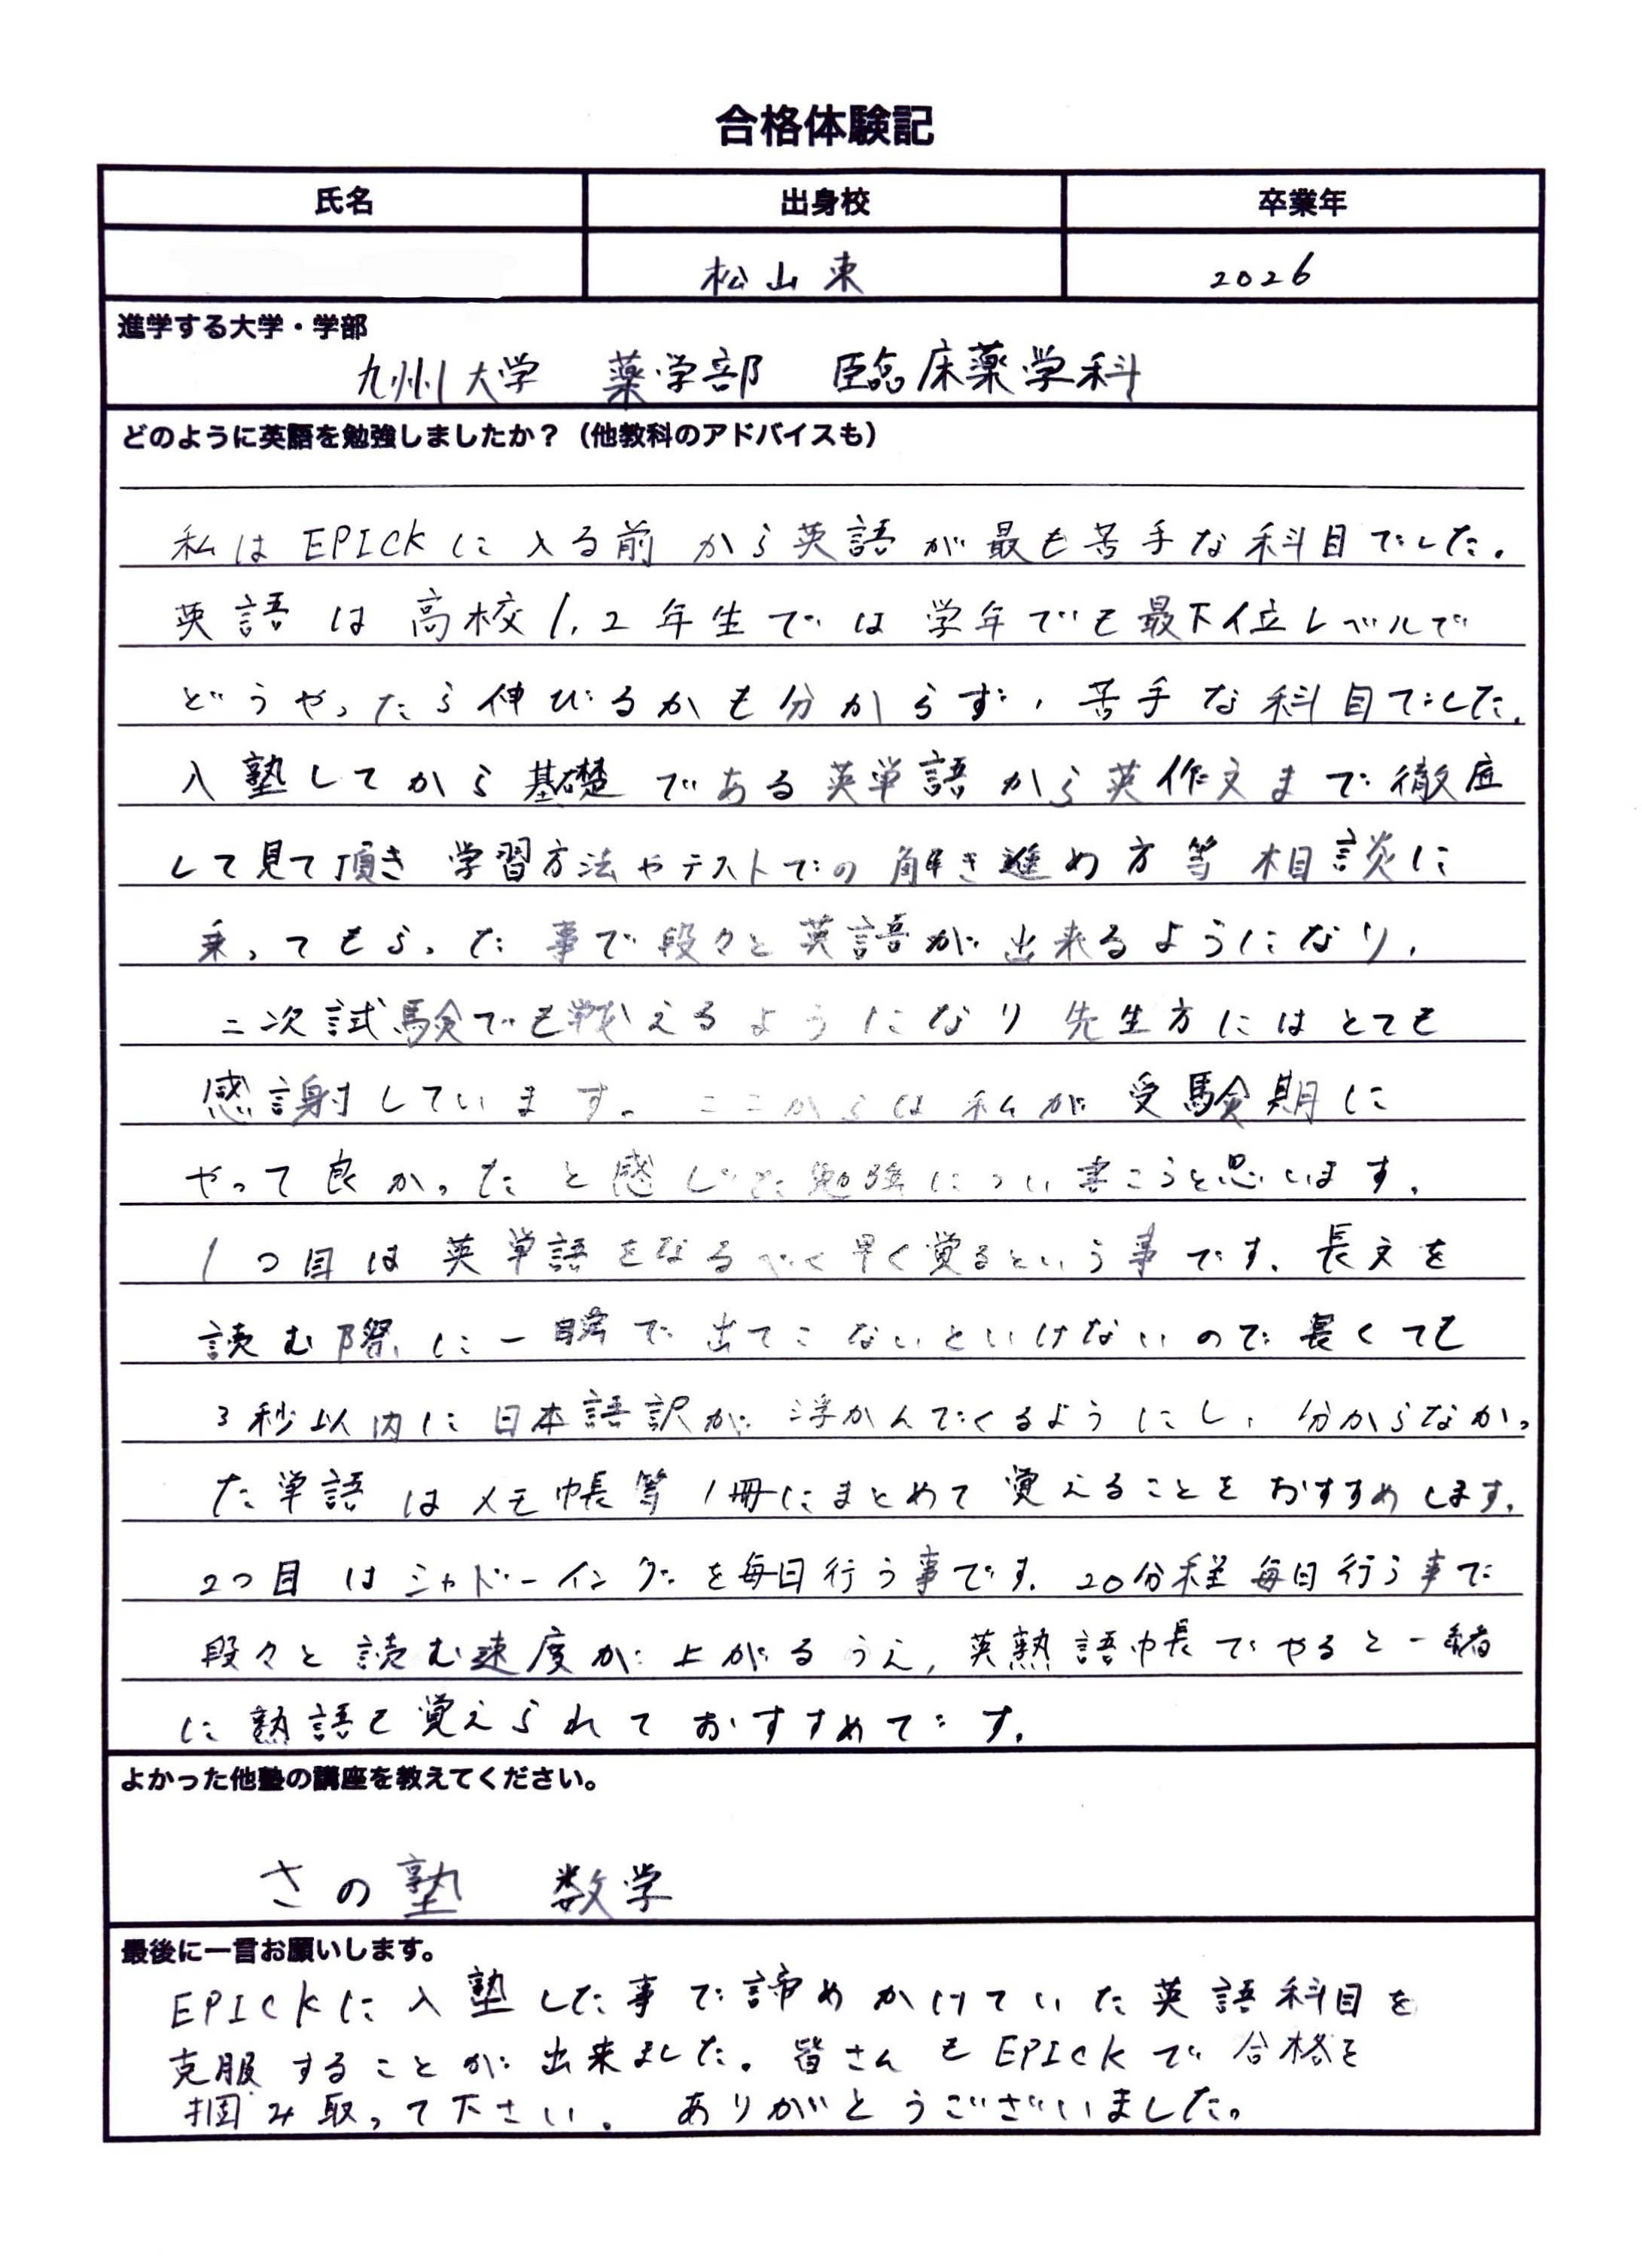 合格体験記
氏名 出身校 卒業年
松山東 2026
進学する大学・学部
九州大学 薬学部 臨床薬学科
どのように英語を勉強しましたか？（他教科のアドバイスも）
私はEPICKに入る前から英語が最も苦手な科目でした。
英語は高校1,2年生では学年でも最下位レベルで
どうやったら伸びるかも分からず、苦手な科目でした。
入塾してから基礎である英単語から英作文まで徹底
して見て頂き学習方法やテストでの解き進め方等相談に
乗ってもらった事で段々と英語が出来るようになり、
二次試験でも戦えるようになり先生方にはとても
感謝しています。ここからは私が受験期に
やって良かったと感じた勉強につい書こうと思います。
1つ目は英単語をなるべく早く覚るという事です。長文を
読む際に一瞬で出てこないといけないので長くても
3秒以内に日本語訳が浮かんでくるようにし、分からなかっ
た単語はメモ帳等1冊にまとめて覚えることをおすすめします。
2つ目はシャドーイングを毎日行う事です。20分程毎日行う事で
段々と読む速度が上がるうえ、英熟語帳でやると一緒
に熟語も覚えられておすすめです。
よかった他塾の講座を教えてください。
さの塾 数学
最後に一言お願いします。
EPICKに入塾した事で諦めかけていた英語科目を
克服することが出来ました。皆さんもEPICKで合格を
掴み取って下さい。ありがとうございました。